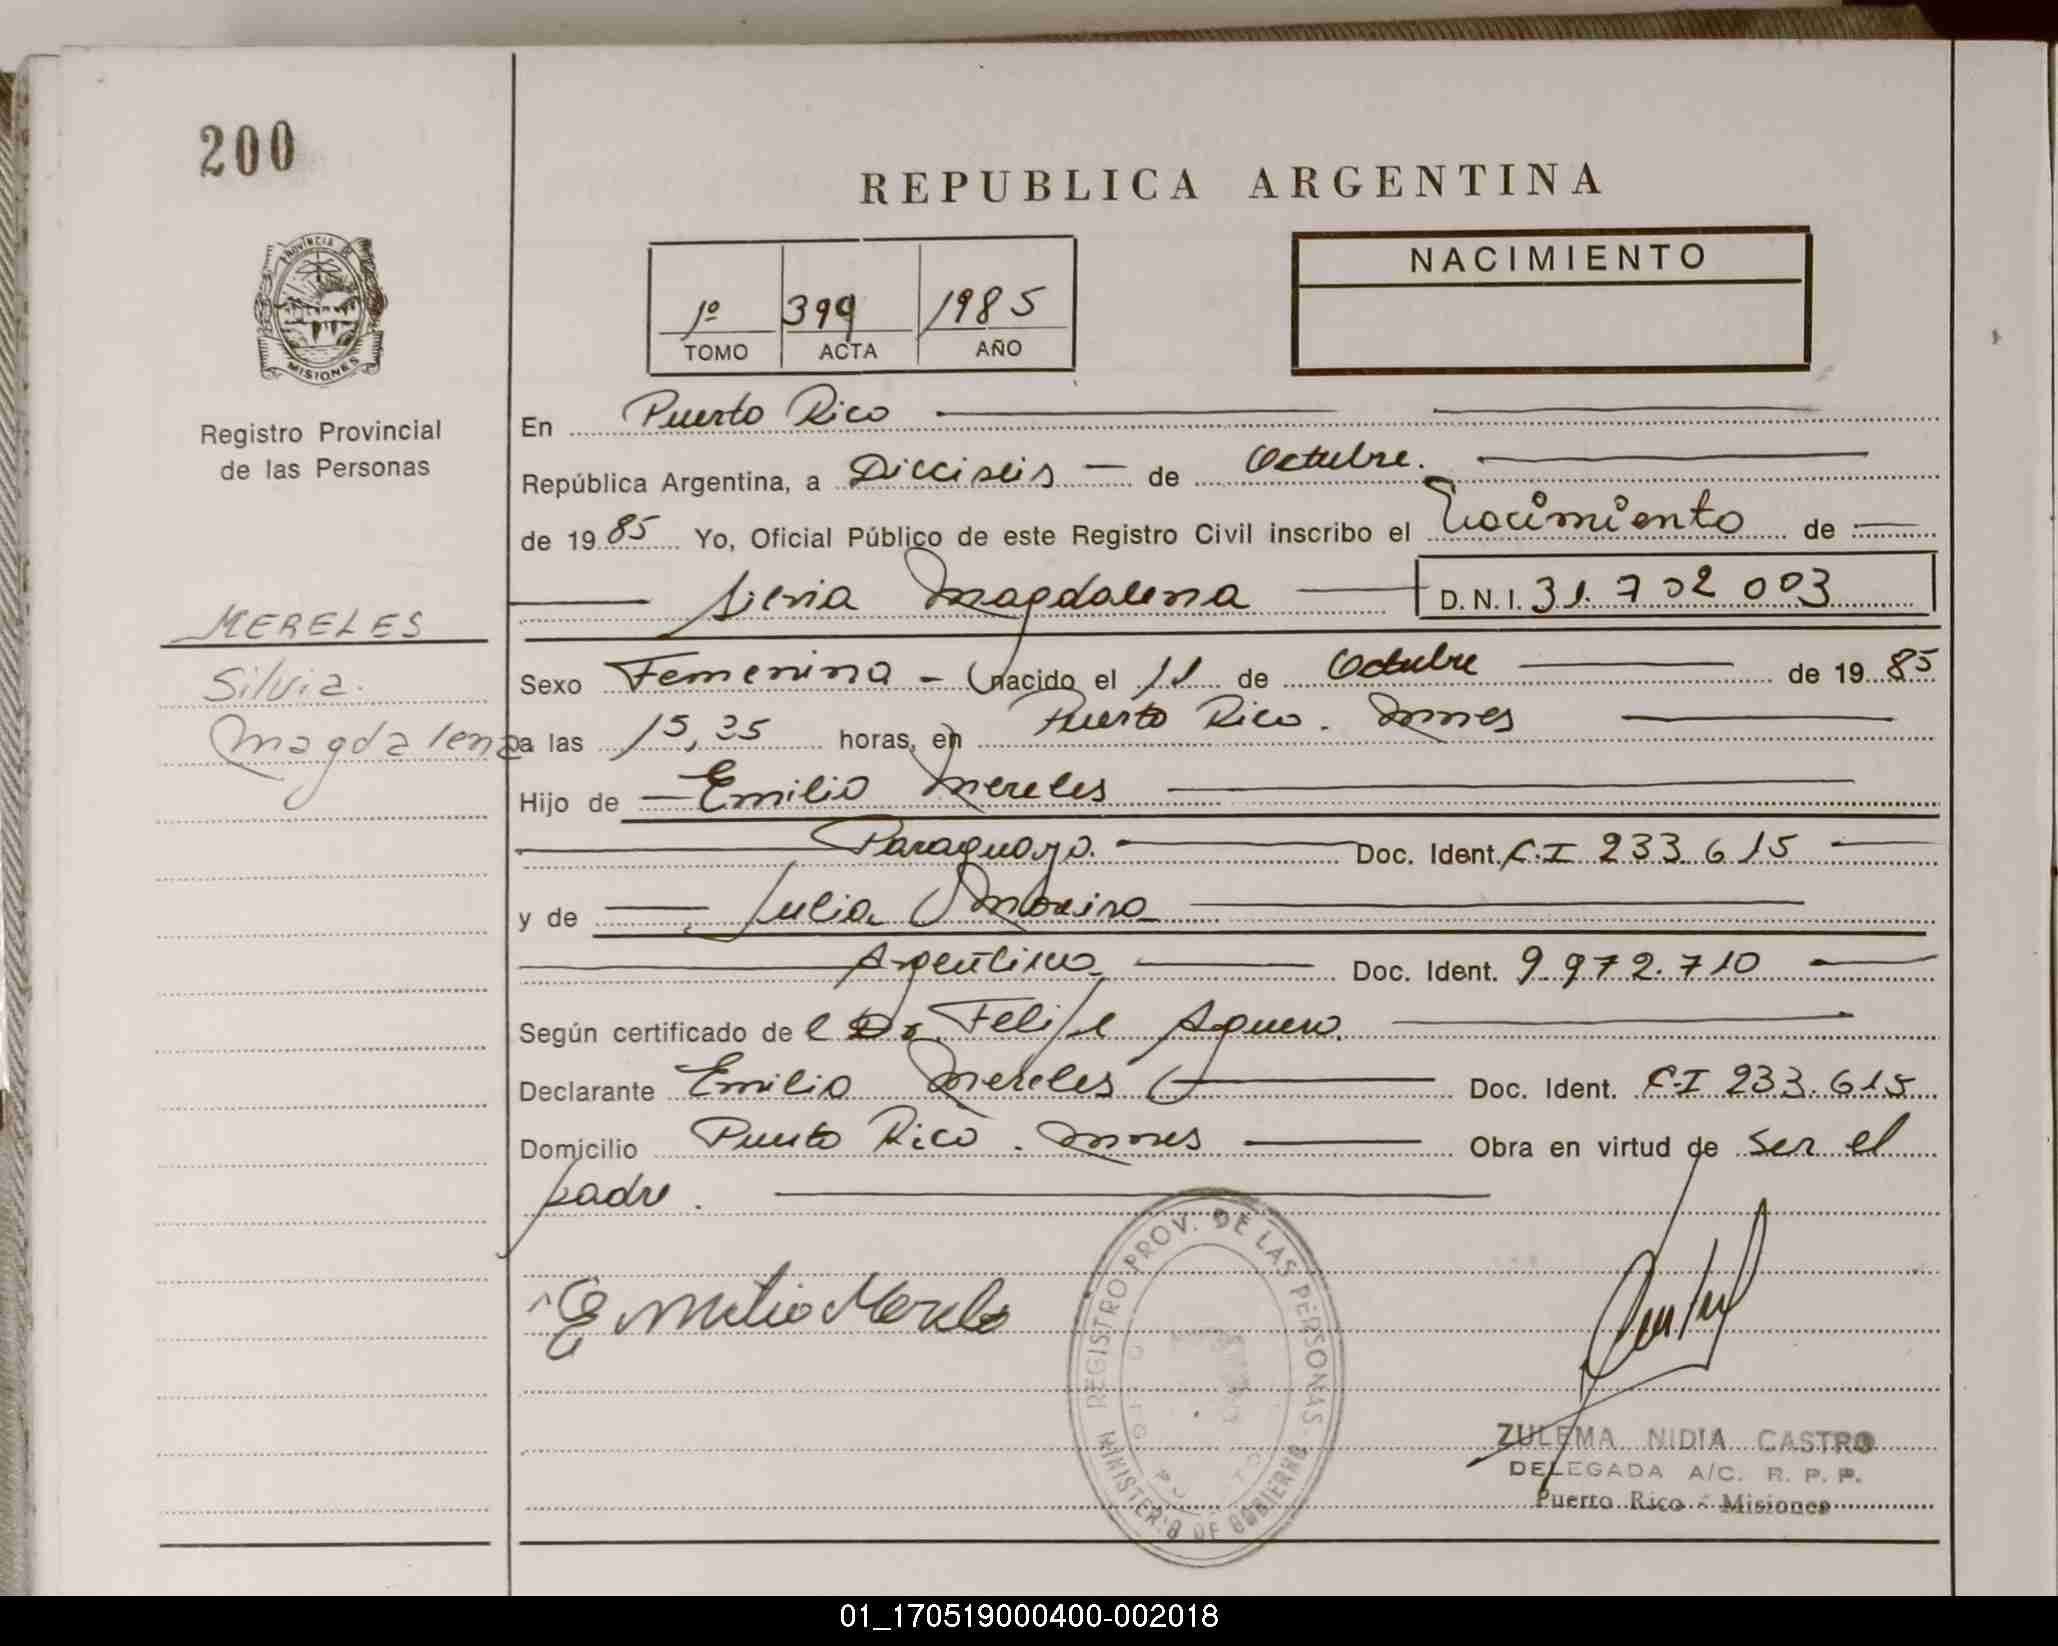 200
REPUBLICA ARGENTINA
PROVINCIA DE
MISIONES
Registro Provincial
de las Personas
1º 399 1985
TOMO ACTA AÑO
NACIMIENTO
En Puerto Rico
República Argentina, a Dieciseis de Octubre.
de 1985 Yo, Oficial Público de este Registro Civil inscribo el Nacimiento de
Silvia Magdalena D.N.I. 31.702003
MERELES
Silvia
Magdalena
Sexo Femenino nacido el 11 de Octubre de 1985
a las 15,35 horas, en Puerto Rico. Mnes
Hijo de Emilio Mereles
Paraguayo. Doc. Ident. C.I 233.615
y de Julia Moreira
Argentina Doc. Ident. 9.972.710
Según certificado del Dr. Felipe Aguero.
Declarante Emilio Mereles Doc. Ident. C.I 233.615
Domicilio Puerto Rico. Mnes Obra en virtud de ser el
padre.
Emilio Mereles
REGISTRO PROV. DE LAS PERSONAS
MINISTERIO DE GOBIERNO
ZULEMA NIDIA CASTRO
DELEGADA A/C. R. P. P.
Puerto Rico - Misiones
01_170519000400-002018